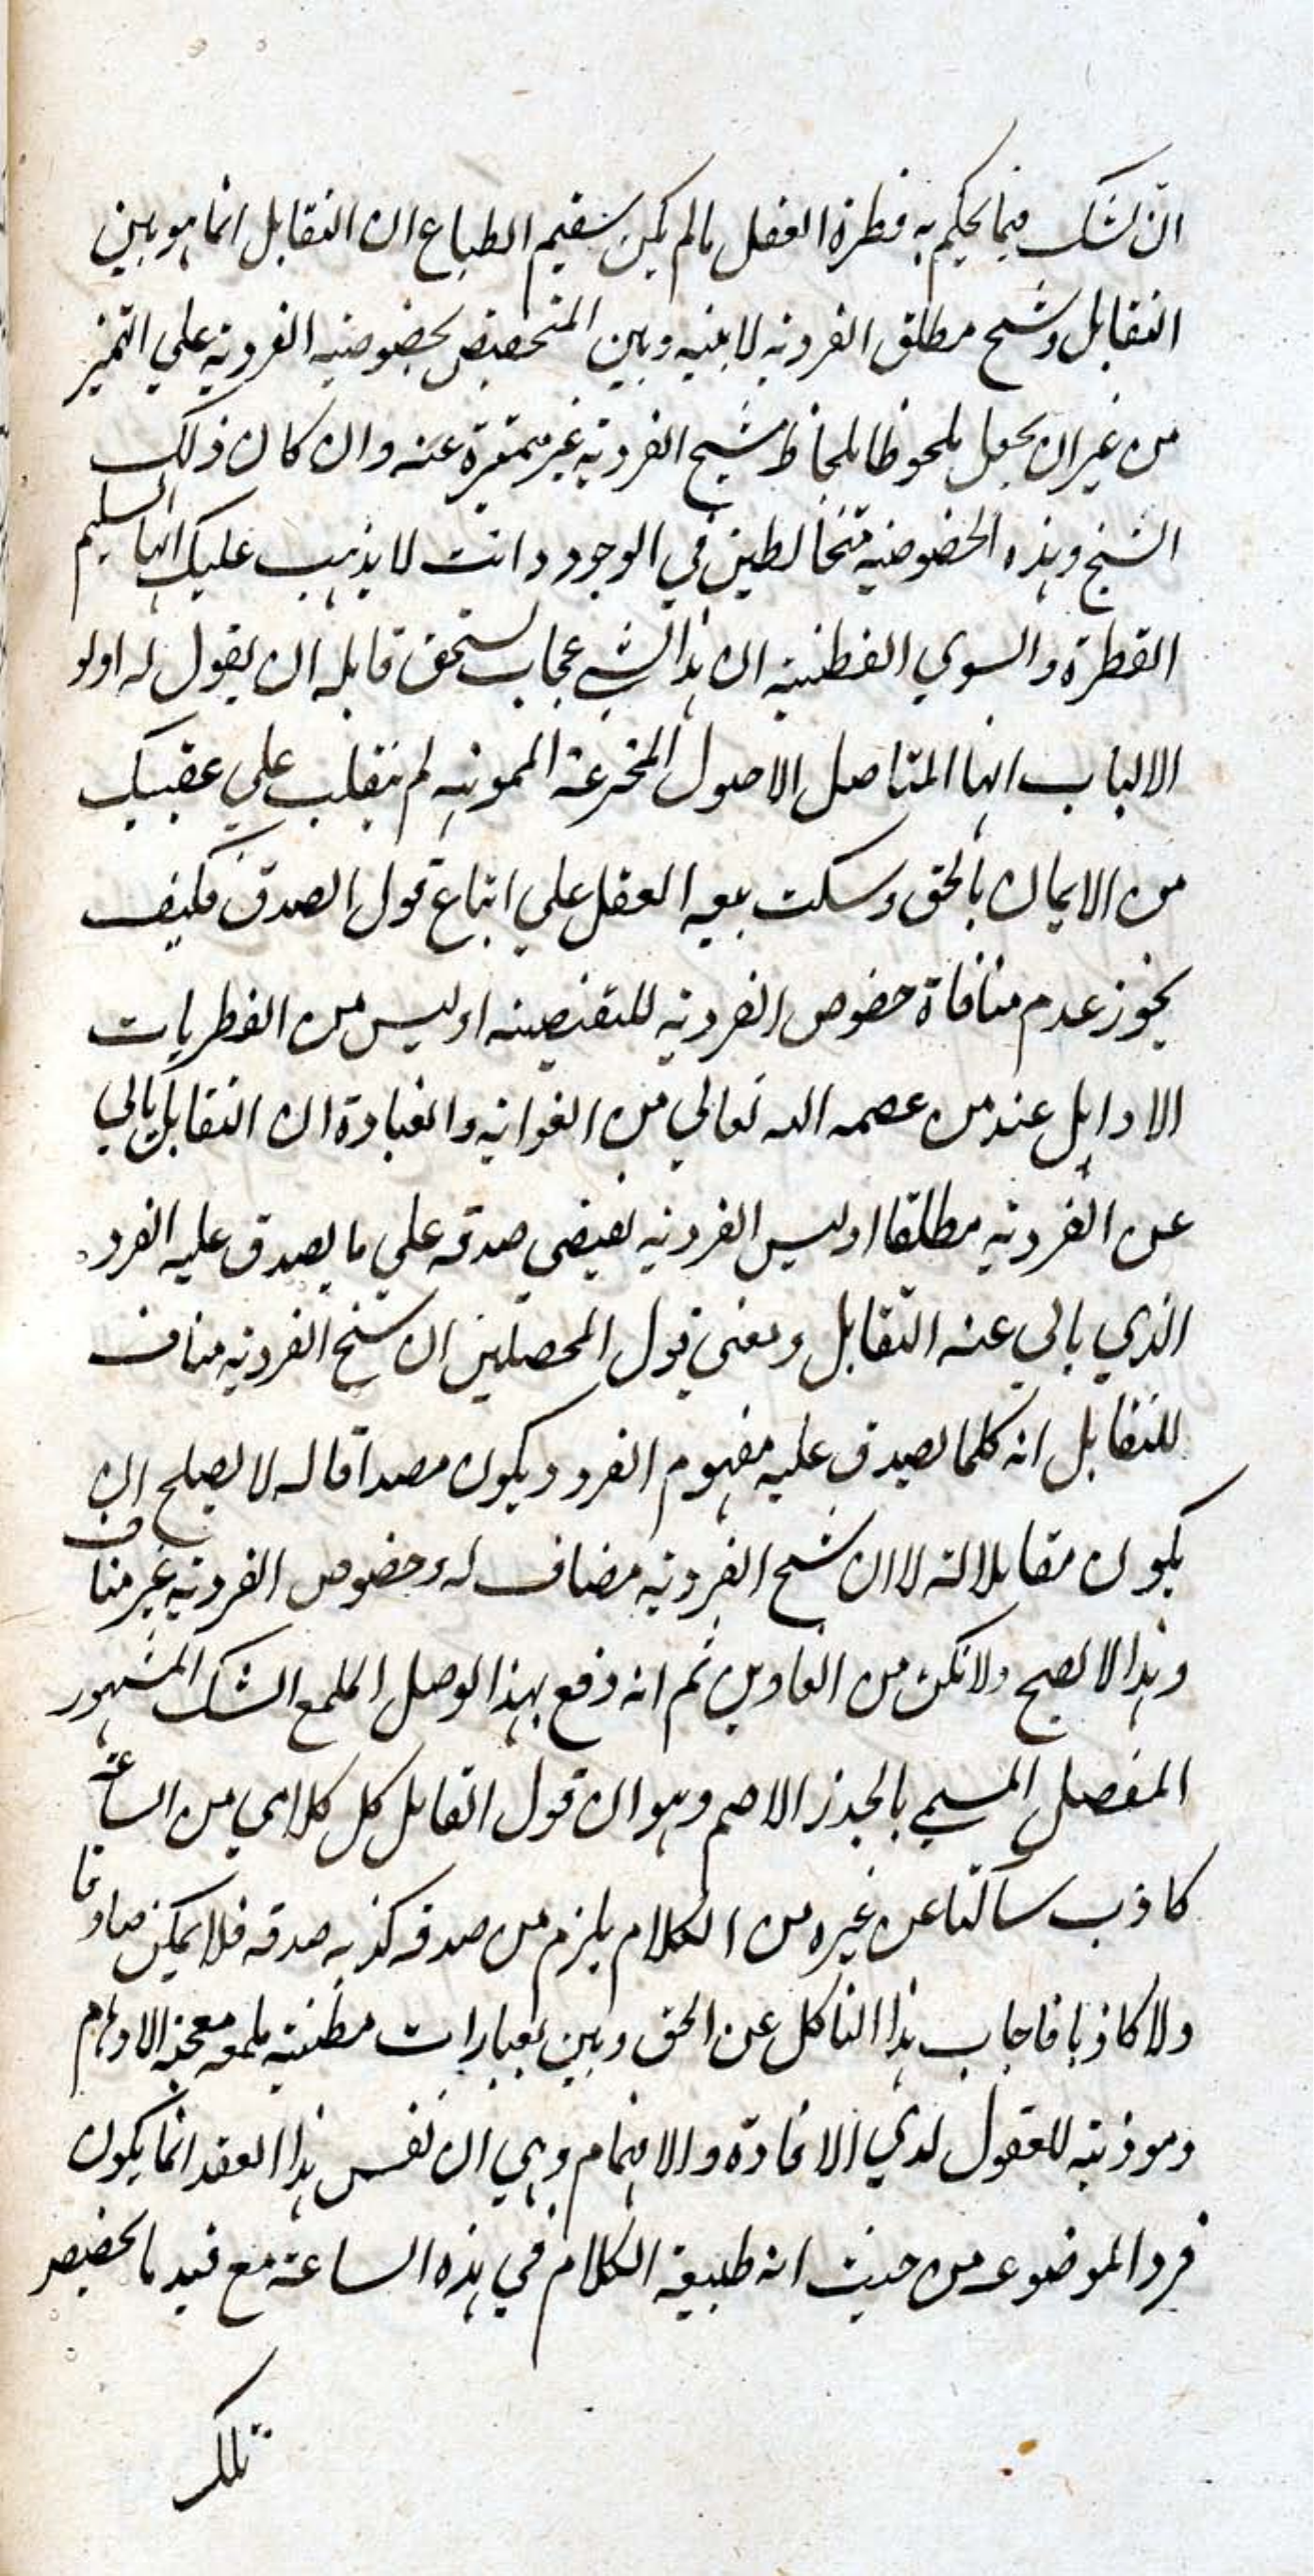 ان نشك فيما يحكم به فطرة العقل ما لم يكن سقيم الطباع ان التقابل انما هو بين
التقابل وشبح مطلق الفردية لا بينه وبين المتخصص بخصوصية الفردية علي التميز
من غير ان يجعل ملحوظا بلحاظ شبح الفردية غير متميزة عنه وان كان ذلك
الشبح وهذه الخصوصية متخالطين في الوجود وانت لا يذهب عليك ايها السليم
الفطرة والسوي الفطنة ان هذا لشي عجاب يستحق قابله ان يقول له اولو
الالباب ايها المتاصل الاصول المخترعة المموهة لم تنقلب علي عقبيك
من الايمان بالحق وسكت بيعه العقل علي اتباع قول الصدق فكيف
يجوز عدم منافاة خصوص الفردية للنقيضية او ليس من الفطريات
الاوايل عند من عصمه الله تعالي من الغواية والغباوة ان التقابل يابي
عن الفردية مطلقا او ليس الفردية يقتضي صدقه علي ما يصدق عليه الفرد
الذي يابي عنه التقابل ومعني قول المحصلين ان سنخ الفردية مناف
للتقابل انه كلما يصدق عليه مفهوم الفرد ويكون مصداقا له لا يصلح ان
يكون مقابلا له لا ان شبح الفردية مضاف له وخصوص الفردية غير مناف
وهذا لا يصح ولا تكن من الغاوين ثم انه دفع بهذا الوصل الملمع الشك المشهور
المفصل المسمي بالجذر الاصم وهو ان قول القائل كل كلامي من الساعة
كاذب ساكتا عن غيره من الكلام يلزم من صدقه كذبه صدقه فلا يمكن صادقا
ولا كاذبا فاجاب هذا الناكل عن الحق وبين بعبارات مطنبة ملمعه معجبه الاوهام
وموذية للعقول لدي الافادة والافهام وهي ان نفس هذا العقد انما يكون
فرد الموضوعه من حيث انه طبيعة الكلام في هذه الساعة مع قيد ما يخصص
تلك